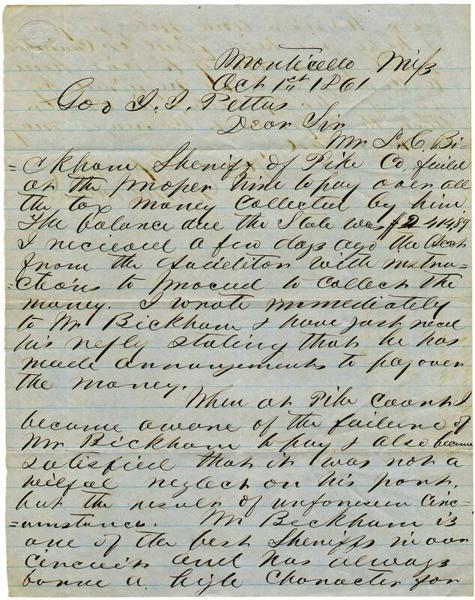 Monticello Miss
Oct 1st 1861
Gov J. J. Pettus
Dear Sir
Mr L. C. Bi-
=ckham Sheriff of Pike Co, faild
at the proper time to pay over all
the tax money collected by him.
The balance due the State was $2414.89
I recieved a few days ago the Acct
from the Auditor with instru-
=ctions to proceed to collect the
money. I wrote immediately
to Mr Bickham & have just recd
his reply stating that he has
made arrangements to pay over
the money.
When at Pike Court I
became aware of the failure of
Mr Bickham to pay & also became
satisfied that it was not a
wilful neglect on his part,
but the result of unforseen circ-
=umstances. Mr Bickham is
one of the best Sheriffs in our
circuit and has always
borne a high character for